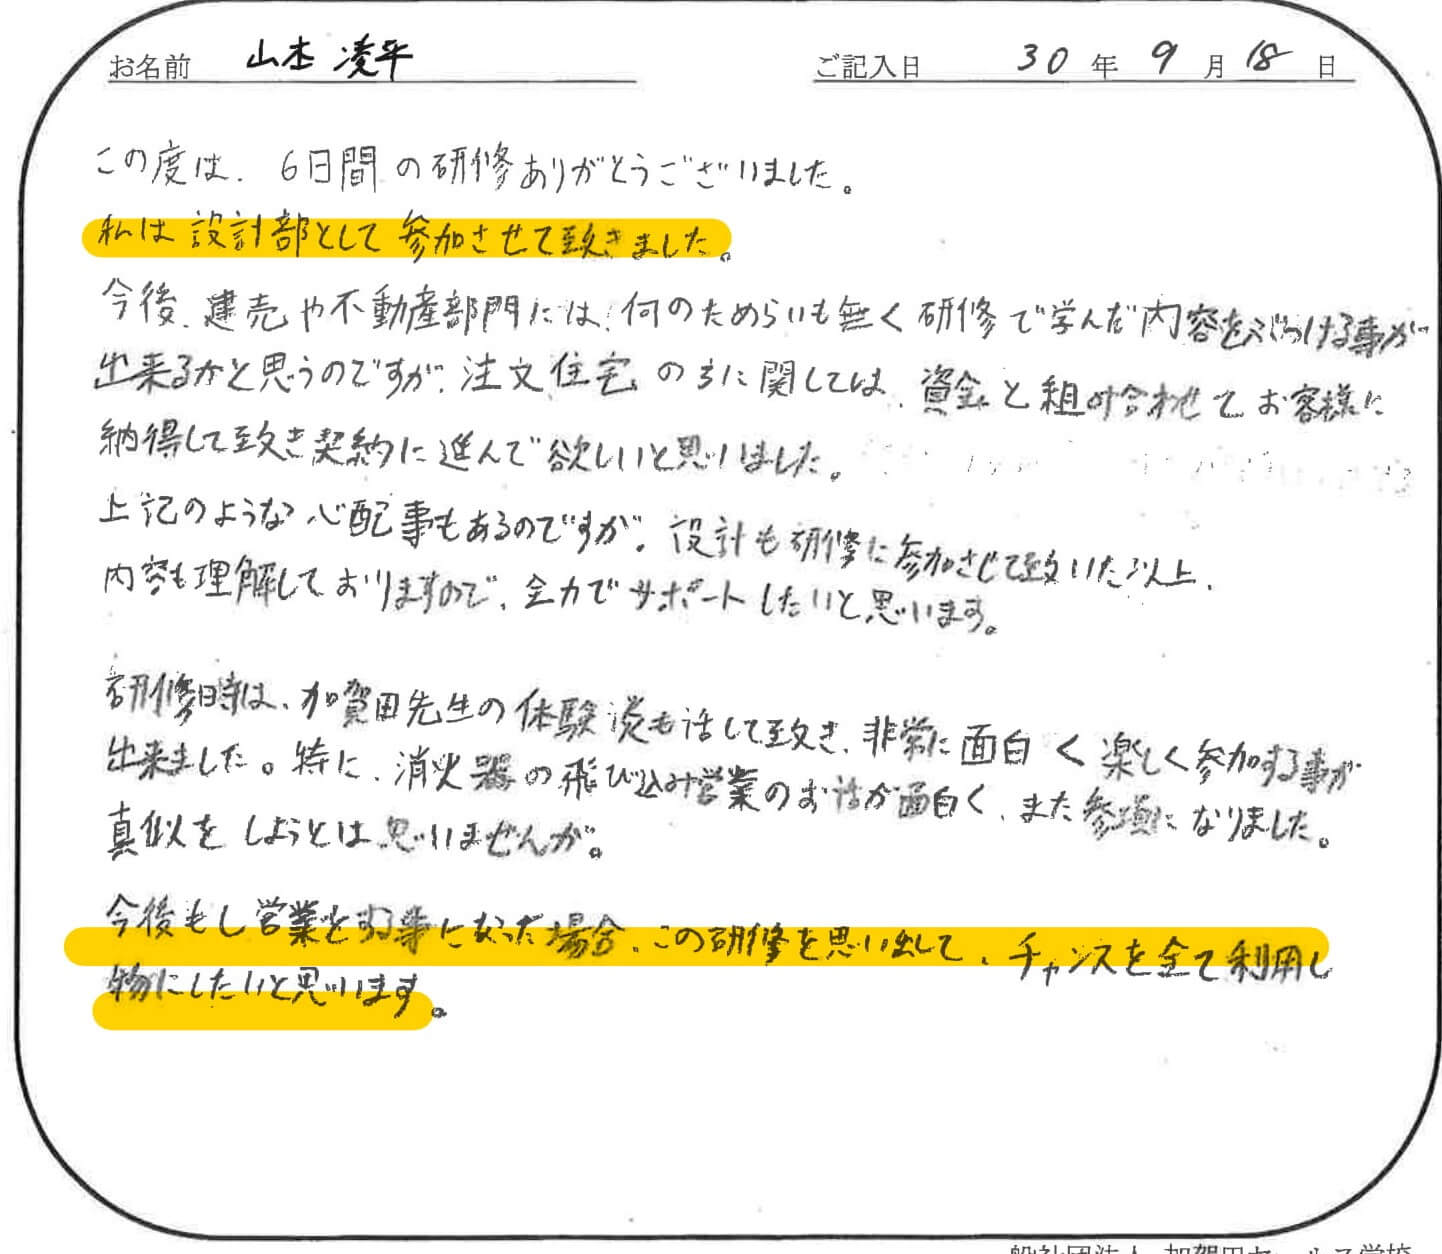 お名前 山本 凌平 ご記入日 30 年 9 月 18 日
この度は、6日間の研修ありがとうございました。
私は設計部として参加させて致きました。
今後、建売や不動産部門には、何のためらいも無く研修で学んだ内容をぶつける事が
出来るかと思うのですが、注文住宅の方に関しては、資金と組み合わせてお客様に
納得して致き契約に進んで欲しいと思いました。
上記のような心配事もあるのですが、設計も研修に参加させて致いた以上、
内容も理解しておりますので、全力でサポートしたいと思います。
研修時は、加賀田先生の体験談も話して致き、非常に面白く楽しく参加する事が
出来ました。特に、消火器の飛び込み営業のお話が面白く、また参考になりました。
真似をしようとは思いませんが。
今後もし営業をする事になった場合、この研修を思い出して、チャンスを全て利用し
物にしたいと思います。